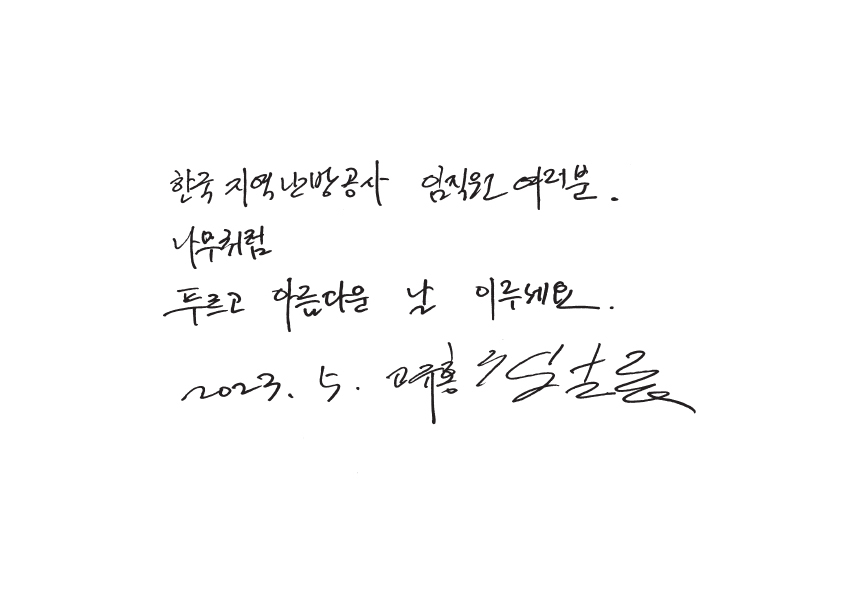 한국지역난방공사 임직원 여러분.
나무처럼
푸르고 아름다운 날 이루세요.
2023. 5. 고규홍